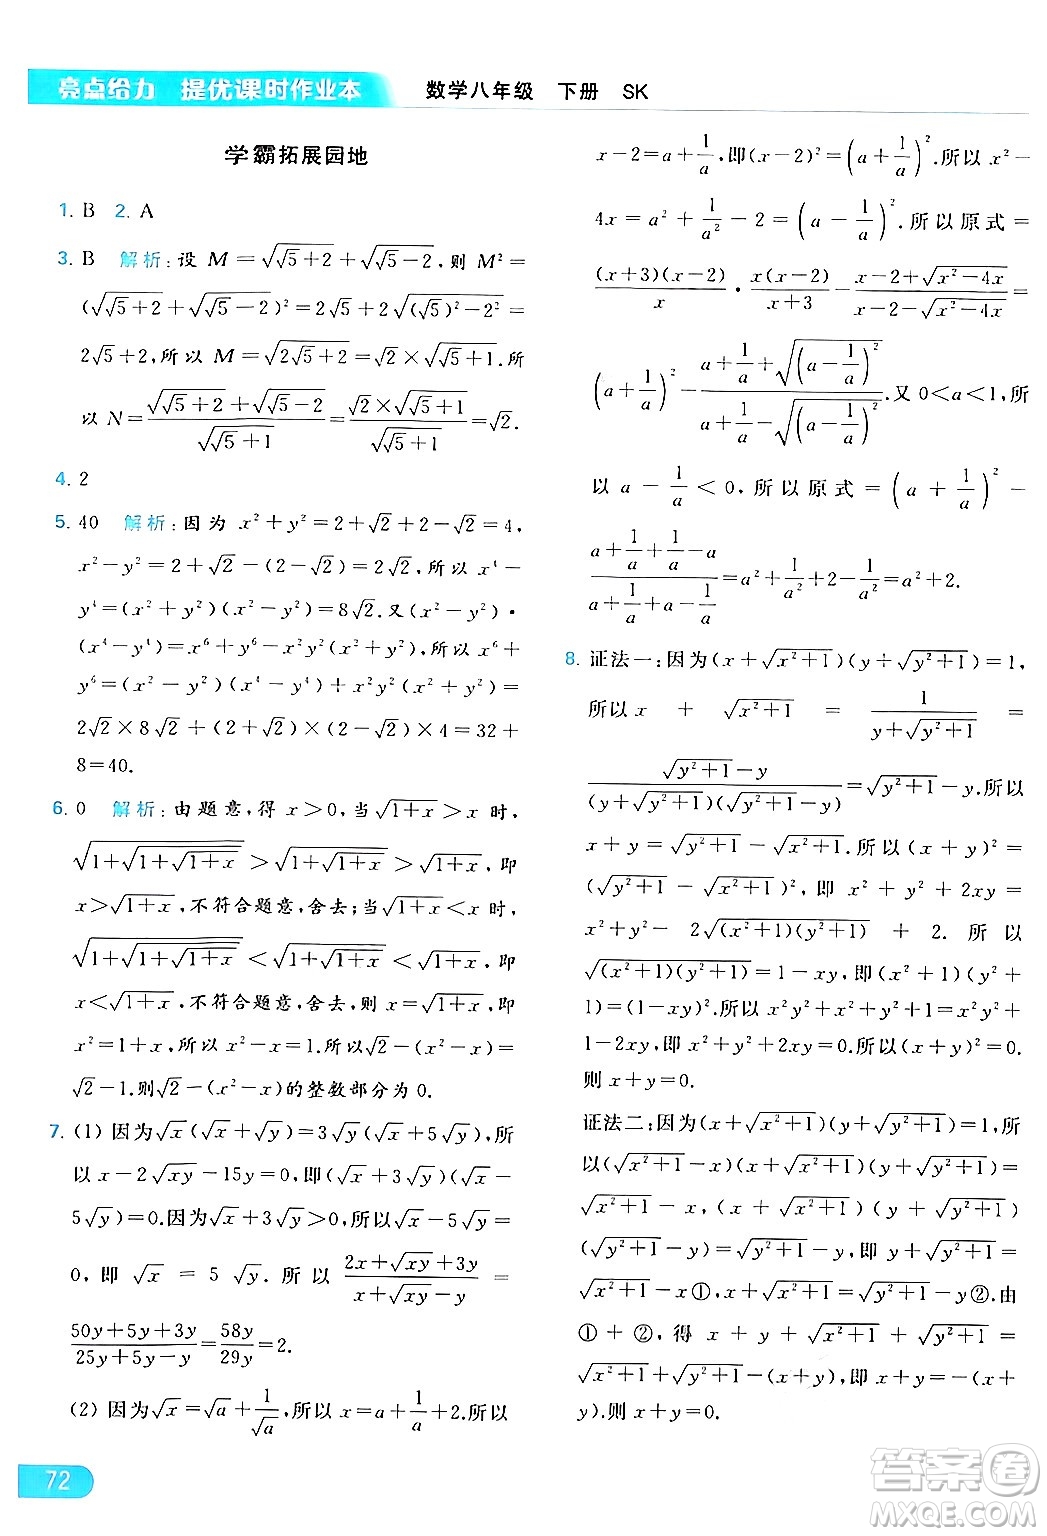 亮点给力 提优课时作业本 数学八年级 下册 SK
学霸拓展园地
1. B 2. A
3. B 解析:设 M=√(√5+2)+√(√5-2),则 M²=
(√(√5+2)+√(√5-2))²=2√5+2√((√5)²-2²)=
2√5+2,所以 M=√(2√5+2)=√2×√(√5+1).所
以 N=(√(√5+2)+√(√5-2))/√(√5+1)=(√2×√(√5+1))/√(√5+1)=√2.
4. 2
5. 40 解析:因为 x²+y²=2+√2+2-√2=4,
x²-y²=2+√2-(2-√2)=2√2,所以 x⁴-
y⁴=(x²+y²)(x²-y²)=8√2.又(x²-y²)·
(x⁴-y⁴)=x⁶+y⁶-x²y²(x²+y²),所以 x⁶+
y⁶=(x²-y²)(x⁴-y⁴)+x²y²(x²+y²)=
2√2×8√2+(2+√2)×(2-√2)×4=32+
8=40.
6. 0 解析:由题意,得 x>0,当√(1+x)>x 时,
√(1+√(1+√(1+x)))>√(1+√(1+x))>√(1+x),即
x>√(1+x),不符合题意,舍去;当√(1+x)<x 时,
√(1+√(1+√(1+x)))<√(1+√(1+x))<√(1+x),即
x<√(1+x),不符合题意,舍去,则 x=√(1+x),即
x²=1+x,所以 x²-x=1.所以√2-(x²-x)=
√2-1.则√2-(x²-x)的整数部分为 0.
7. (1) 因为√x(√x+√y)=3√y(√x+5√y),所
以 x-2√(xy)-15y=0,即(√x+3√y)(√x-
5√y)=0.因为√x+3√y>0,所以√x-5√y=
0,即 √x = 5 √y.所以 (2x+√(xy)+3y)/(x+√(xy)-y)=
(50y+5y+3y)/(25y+5y-y)=58y/29y=2.
(2) 因为√x=√a+1/√a,所以 x=a+1/a+2.所以
x-2=a+1/a,即(x-2)²=(a+1/a)².所以 x²-
4x=a²+1/a²-2=(a-1/a)².所以原式=
(x+3)(x-2)/x·x(x-2)/(x+3)-(x-2+√(x²-4x))/(x-2-√(x²-4x))=
(a+1/a)²-(a+1/a+√((a-1/a)²))/(a+1/a-√((a-1/a)²)).又 0<a<1,所
以 a-1/a<0,所以原式=(a+1/a)²-
(a+1/a+1/a-a)/(a+1/a+a-1/a)=a²+1/a²+2-1/a²=a²+2.
8. 证法一:因为(x+√(x²+1))(y+√(y²+1))=1,
所以 x + √(x²+1) = 1/(y+√(y²+1)) =
(√(y²+1)-y)/((y+√(y²+1))(√(y²+1)-y))=√(y²+1)-y.所以
x+y=√(y²+1)-√(x²+1).所以(x+y)²=
(√(y²+1)-√(x²+1))²,即 x²+y²+2xy=
x²+y²-2√((x²+1)(y²+1))+2.所以
√((x²+1)(y²+1))=1-xy,即(x²+1)(y²+
1)=(1-xy)².所以 x²y²+x²+y²+1=x²y²+
1-2xy,即 x²+y²+2xy=0.所以(x+y)²=0.
则 x+y=0.
证法二:因为(x+√(x²+1))(y+√(y²+1))=1,所
以(√(x²+1)-x)(x+√(x²+1))(y+√(y²+1))=
√(x²+1)-x,(x+√(x²+1))(y+√(y²+1))
(√(y²+1)-y)=√(y²+1)-y.所以 y+√(y²+1)=
√(x²+1)-x①,x+√(x²+1)=√(y²+1)-y②.由
①+②,得 x+y+√(x²+1)+√(y²+1)=
√(x²+1)+√(y²+1)-(x+y),即 x+y=-(x+
y).则 x+y=0.
72
答案圈
MXQE.COM